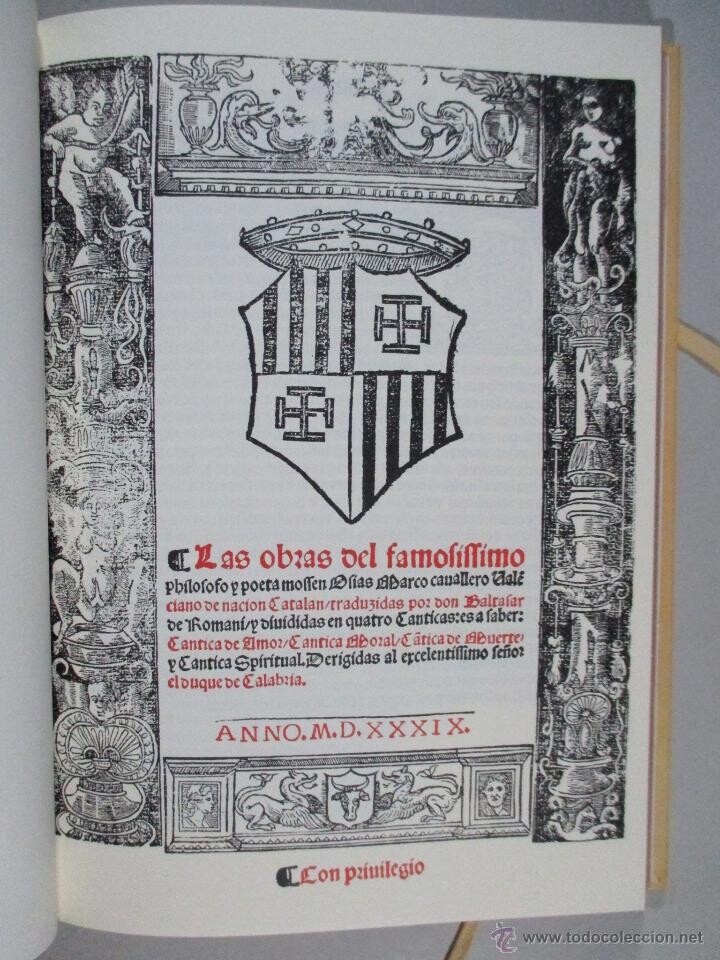 ¶ Las obras del famosissimo
philosofo y poeta mossen Osias Marco cauallero Valē
ciano de nacion Catalan/traduzidas por don Baltasar
de Romani/y diuididas en quatro Canticas:es a saber:
Cantica de Amor/Cantica Moral/Cātica de Muerte/
y Cantica Spiritual. Derigidas al excelentissimo señor
el duque de Calabria.
ANNO.M.D.XXXIX.
¶ Con priuilegio
© www.todocoleccion.net